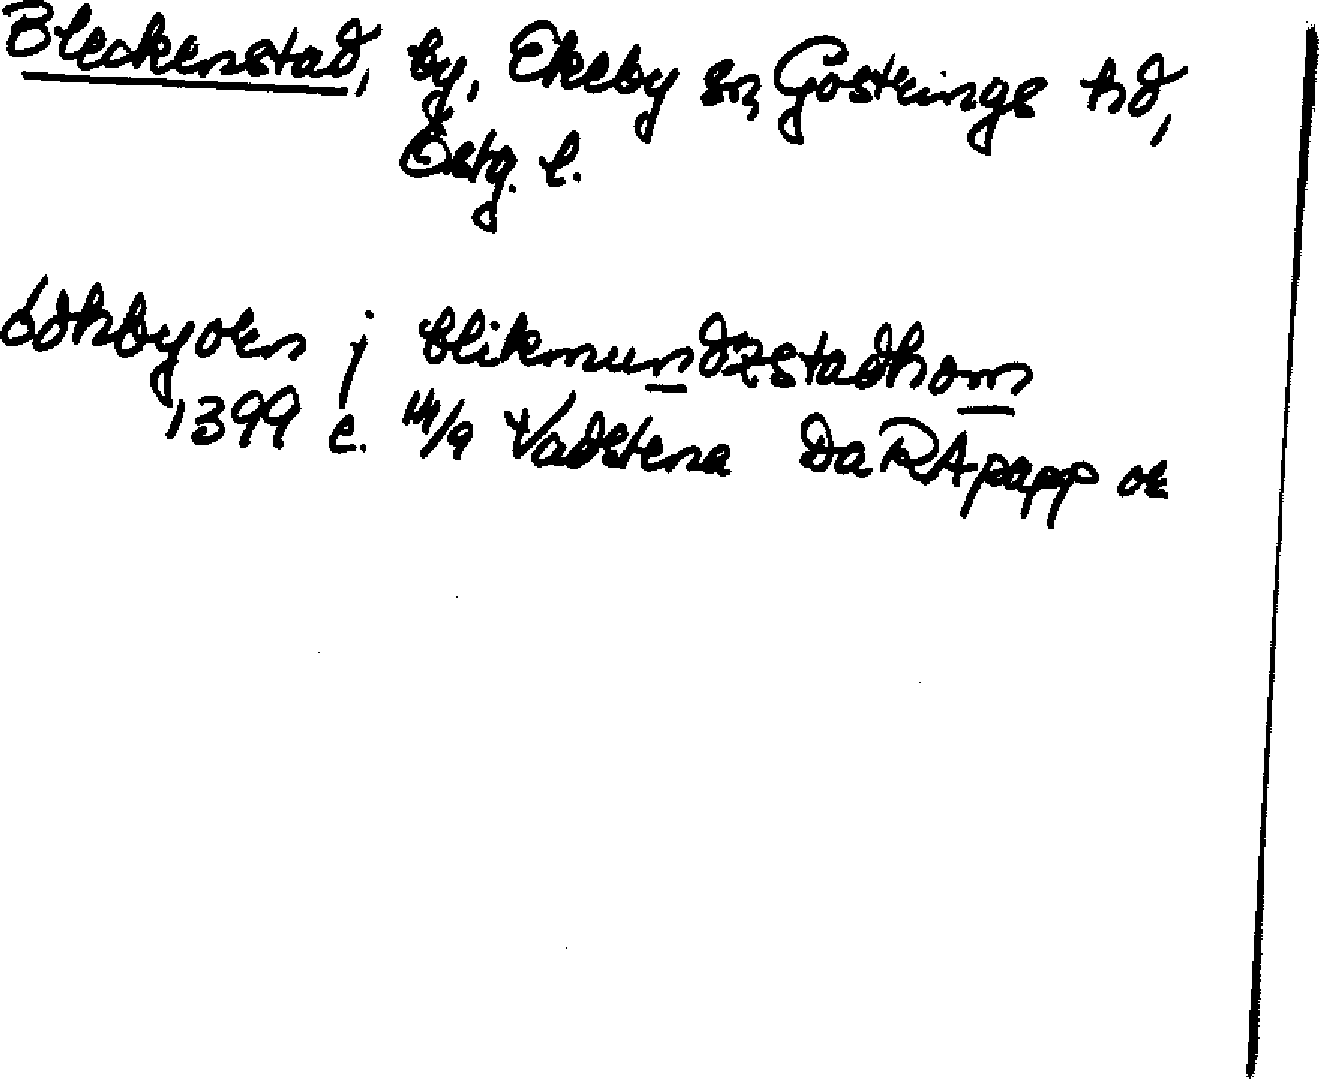 Bleckenstad, by, Ekeby sn, Göstrings hd,
Östg. l.
j blikmundzstadhom
1399 e. 14/9 Vadstena Da RA papp or